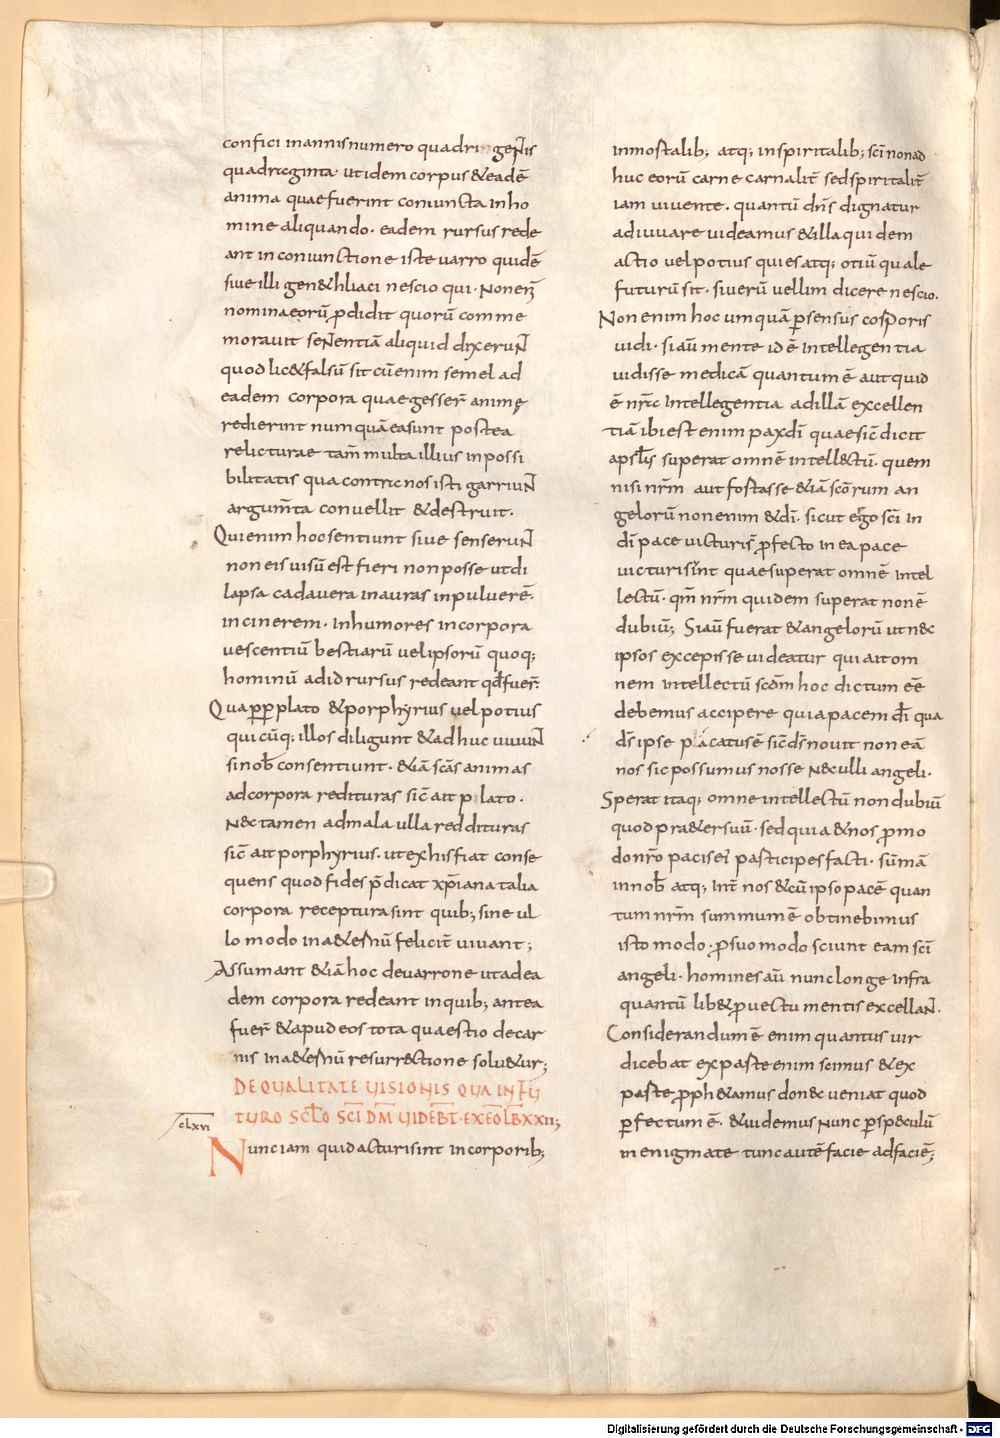 confici in annis numero quadri gentis
quadraginta. ut idem corpus & eadē
anima quae fuerint coniuncta in ho
mine aliquando. eadem rursus rede
ant in coniunctione iste varro quidē
siue illi geneth&hliaci nescio qui. Non enī
nomina eorū p̄didit quorū comme
morauit sententiā aliquid dixerunt
quod lic& falsū sit cū enim semel ad
eadem corpora quae gesser̄ animę
redierint numquā ea sunt postea
relicturae tam̄ multa illius inpossi
bilitatis qua contra nos isti garriunt
argum̄ta conuellit & destruit.
Qui enim hoc sentiunt siue senserunt
non eis uisū est fieri non posse ut di
lapsa cadauera in auras in puluerē.
in cinerem. in humores in corpora
uescentiū bestiarū uel ipsorū quoq;
hominū ad id rursus redeant qđ fuer̄.
Qua p̱p̱ plato & porphyrius uel potius
qui cūq; illos diligunt & adhuc uiuunt
si nob̄ consentiunt. &iā scās animas
ad corpora redituras sic̄ ait p lato.
Nec tamen ad mala ulla reddituras
sic̄ ait porphyrius. ut ex his fiat conse
quens quod fides p̄dicat xp̄iana talia
corpora recepturas int quib; sine ul
lo modo in a&ernū felicit̄ uiuant;
Assumant &iā hoc de uarrone ut ad ea
dem corpora redeant in quib; antea
fuer̄ & apud eos tota quaestio de car
nis in a&ernū resurr&ctione solu&ur;
DE QUALITATE UISIONIS QUA IN FU
TURO SCL̄O SCĪ DM̄ UIDEB̄T. EX EOD̄ LB̄ XXII;
CLXVI
Nunc iam quid acturi sint in corporib;
inmortalib; atq; in spiritalib; scī non ad
huc eorū carne carnalit̄ sed spiritalit̄
iam uiuente. quantū dn̄s dignatur
adiuuare uideamus & illa quidem
actio uel potius quies atq; otiū quale
futurū sit. si uerū uellim dicere nescio.
Non enim hoc umquā p̱ sensus corporis
uidi. si aū mente id ē intellegentia
uidisse me dicā quantum ē aut quid
ē nr̄a intellegentia ad illā excellen
tiā ibi est enim pax dī quae sic̄ dicit
apsl̄s superat omnē intellectū. quem
nisi nr̄m aut fortasse &iā scōrum an
gelorū non enim & dī. sicut ergo scī in
dī pace uicturi sīt p̱fecto in ea pace
uicturi sīnt quae superat omnē intel
lectū. qm̄ nr̄m quidem superat non ē
dubiū; Si aū fuerat & angelorū ut nec
ipsos excepisse uideatur qui ait om
nem intellectū scd̄m hoc dictum eē
debemus accipere quia pacem dī qua
ds̄ ipse pacatus ē sic̄ ds̄ nouit non eā
nos sic possumus nosse nec ulli angeli.
Sperat itaq; omne intellectū non dubiū
quod pra&er suū. sed quia & nos p̱ mo
do nr̄o pacis ei participes facti. sūmā
in nob̄ atq; int̄ nos & cū ipso pacē quan
tum nr̄m summum ē obtinebimus
isto modo. p̱ suo modo sciunt eam scī
angeli. homines aū nunc longe infra
quantū lib& p̱uectu mentis excellant.
Considerandum ē enim quantus uir
dicebat ex parte enim scimus & ex
parte p̱ph&amus donec ueniat quod
p̱fectum ē. & uidemus nunc p̱ speculū
in enigmate tunc autē facie ad faciē;
Digitalisierung gefördert durch die Deutsche Forschungsgemeinschaft - DFG